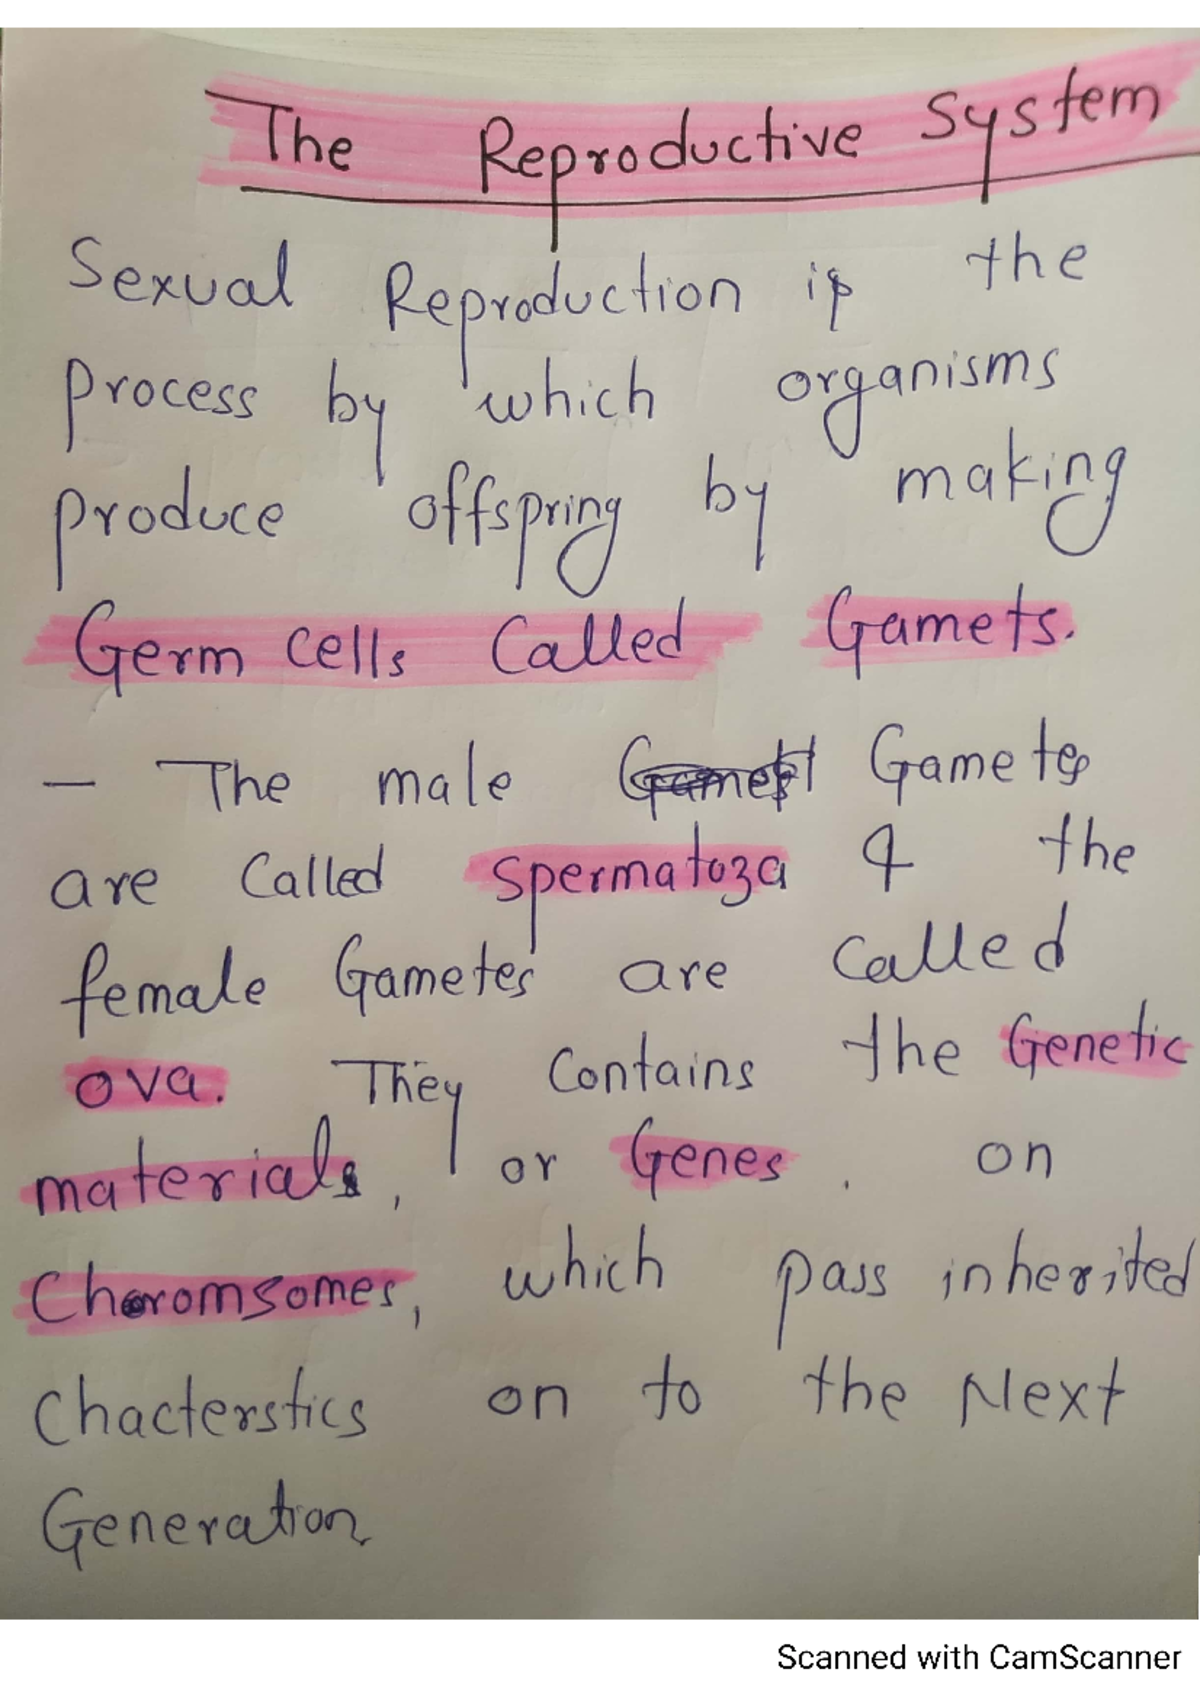 The Reproductive System
Sexual Reproduction is the
process by which organisms
produce offspring by making
Germ cells Called Gamets.
- The male Gametes
are Called Spermatoza & the
female Gametes are Called
ova. They Contains the Genetic
materials, or Genes. on
Choromsomes, which pass inherited
Chacterstics on to the Next
Generation
Scanned with CamScanner